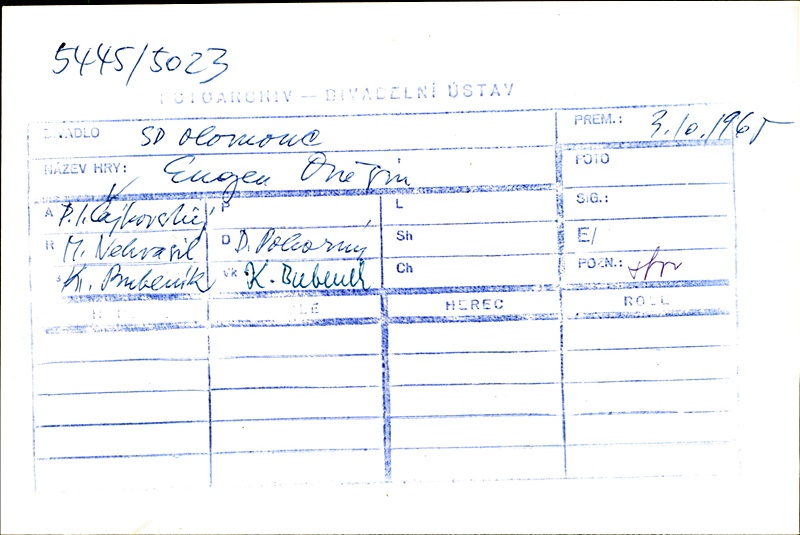 5445/5023
FOTOARCHIV — DIVADELNÍ ÚSTAV
DIVADLO SD Olomouc
PREM.: 3.10.1965
NÁZEV HRY: Eugen Oněgin
FOTO
A P. I. Čajkovský
P
L
SIG.:
R M. Nehvasil
D D. Pokorný
Sh
E/
K. Bubeník
Vk K. Bubeník
Ch
POZN.:
HEREC ROLE HEREC ROLE